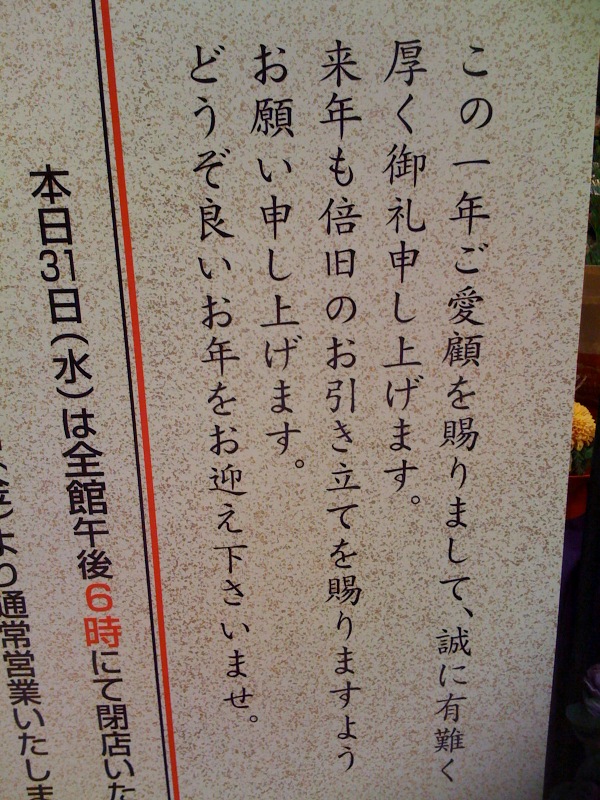 この一年ご愛顧を賜りまして、誠に有難く
厚く御礼申し上げます。
来年も倍旧のお引き立てを賜りますよう
お願い申し上げます。
どうぞ良いお年をお迎え下さいませ。
本日31日(水)は全館午後6時にて閉店いた
(金)より通常営業いたしま